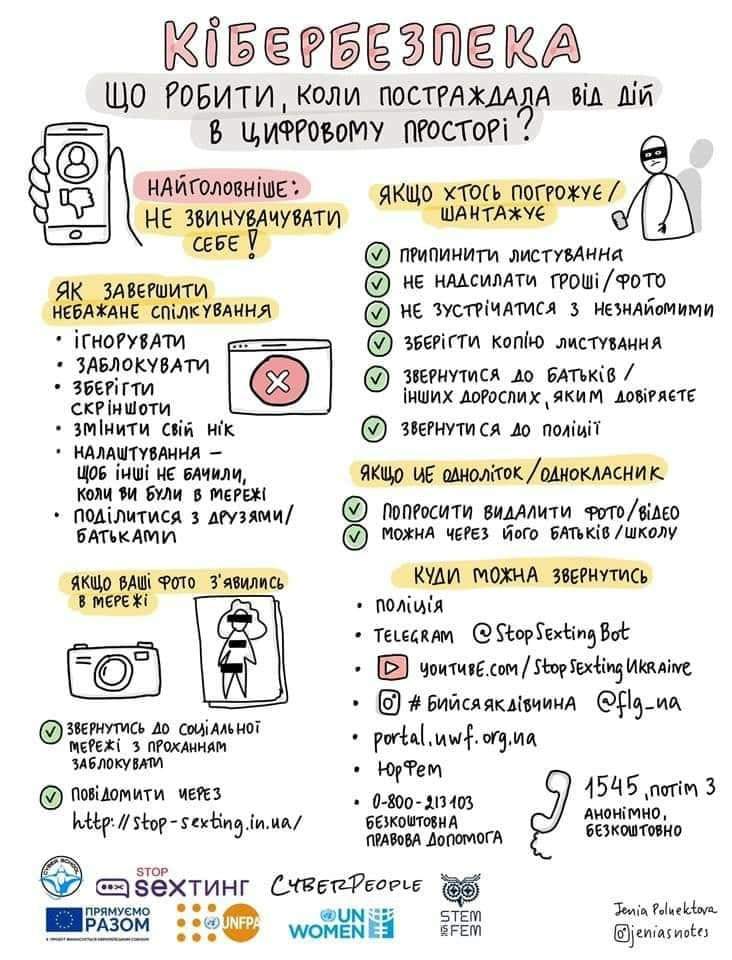 КІБЕРБЕЗПЕКА
ЩО РОБИТИ, КОЛИ ПОСТРАЖДАЛА ВІД ДІЙ
В ЦИФРОВОМУ ПРОСТОРІ?
НАЙГОЛОВНІШЕ:
НЕ ЗВИНУВАЧУВАТИ
СЕБЕ!
ЯК ЗАВЕРШИТИ
НЕБАЖАНЕ СПІЛКУВАННЯ
• ІГНОРУВАТИ
• ЗАБЛОКУВАТИ
• ЗБЕРІГТИ
СКРІНШОТИ
• ЗМІНИТИ СВІЙ НІК
• НАЛАШТУВАННЯ –
ЩОБ ІНШІ НЕ БАЧИЛИ,
КОЛИ ВИ БУЛИ В МЕРЕЖІ
• ПОДІЛИТИСЯ З ДРУЗЯМИ/
БАТЬКАМИ
ЯКЩО ВАШІ ФОТО З'ЯВИЛИСЬ
В МЕРЕЖІ
ЗВЕРНУТИСЬ ДО СОЦІАЛЬНОЇ
МЕРЕЖІ З ПРОХАННЯМ
ЗАБЛОКУВАТИ
ПОВІДОМИТИ ЧЕРЕЗ
http://stop-sexting.in.ua/
ЯКЩО ХТОСЬ ПОГРОЖУЄ/
ШАНТАЖУЄ
ПРИПИНИТИ ЛИСТУВАННЯ
НЕ НАДСИЛАТИ ГРОШІ/ФОТО
НЕ ЗУСТРІЧАТИСЯ З НЕЗНАЙОМИМИ
ЗБЕРІГТИ КОПІЮ ЛИСТУВАННЯ
ЗВЕРНУТИСЯ ДО БАТЬКІВ/
ІНШИХ ДОРОСЛИХ, ЯКИМ ДОВІРЯЄТЕ
ЗВЕРНУТИСЯ ДО ПОЛІЦІЇ
ЯКЩО ЦЕ ОДНОЛІТОК/ОДНОКЛАСНИК
ПОПРОСИТИ ВИДАЛИТИ ФОТО/ВІДЕО
МОЖНА ЧЕРЕЗ ЙОГО БАТЬКІВ/ШКОЛУ
КУДИ МОЖНА ЗВЕРНУТИСЬ
• ПОЛІЦІЯ
• TELEGRAM @StopSextingBot
• YOUTUBE.COM/StopSextingUKRAINE
• #БИЙСЯЯКДІВЧИНА @flg_ua
• portal.uwf.org.ua
• ЮрФем
• 0-800-213103
БЕЗКОШТОВНА
ПРАВОВА ДОПОМОГА
1545, ПОТІМ 3
АНОНІМНО,
БЕЗКОШТОВНО
CYBER SCHOOL
STOP
SEXТИНГ
CYBERPEOPLE
ПРЯМУЄМО
РАЗОМ
UNFPA
UN
WOMEN
STEM
IS
FEM
Jenia Poluektova
@jeniasnotes